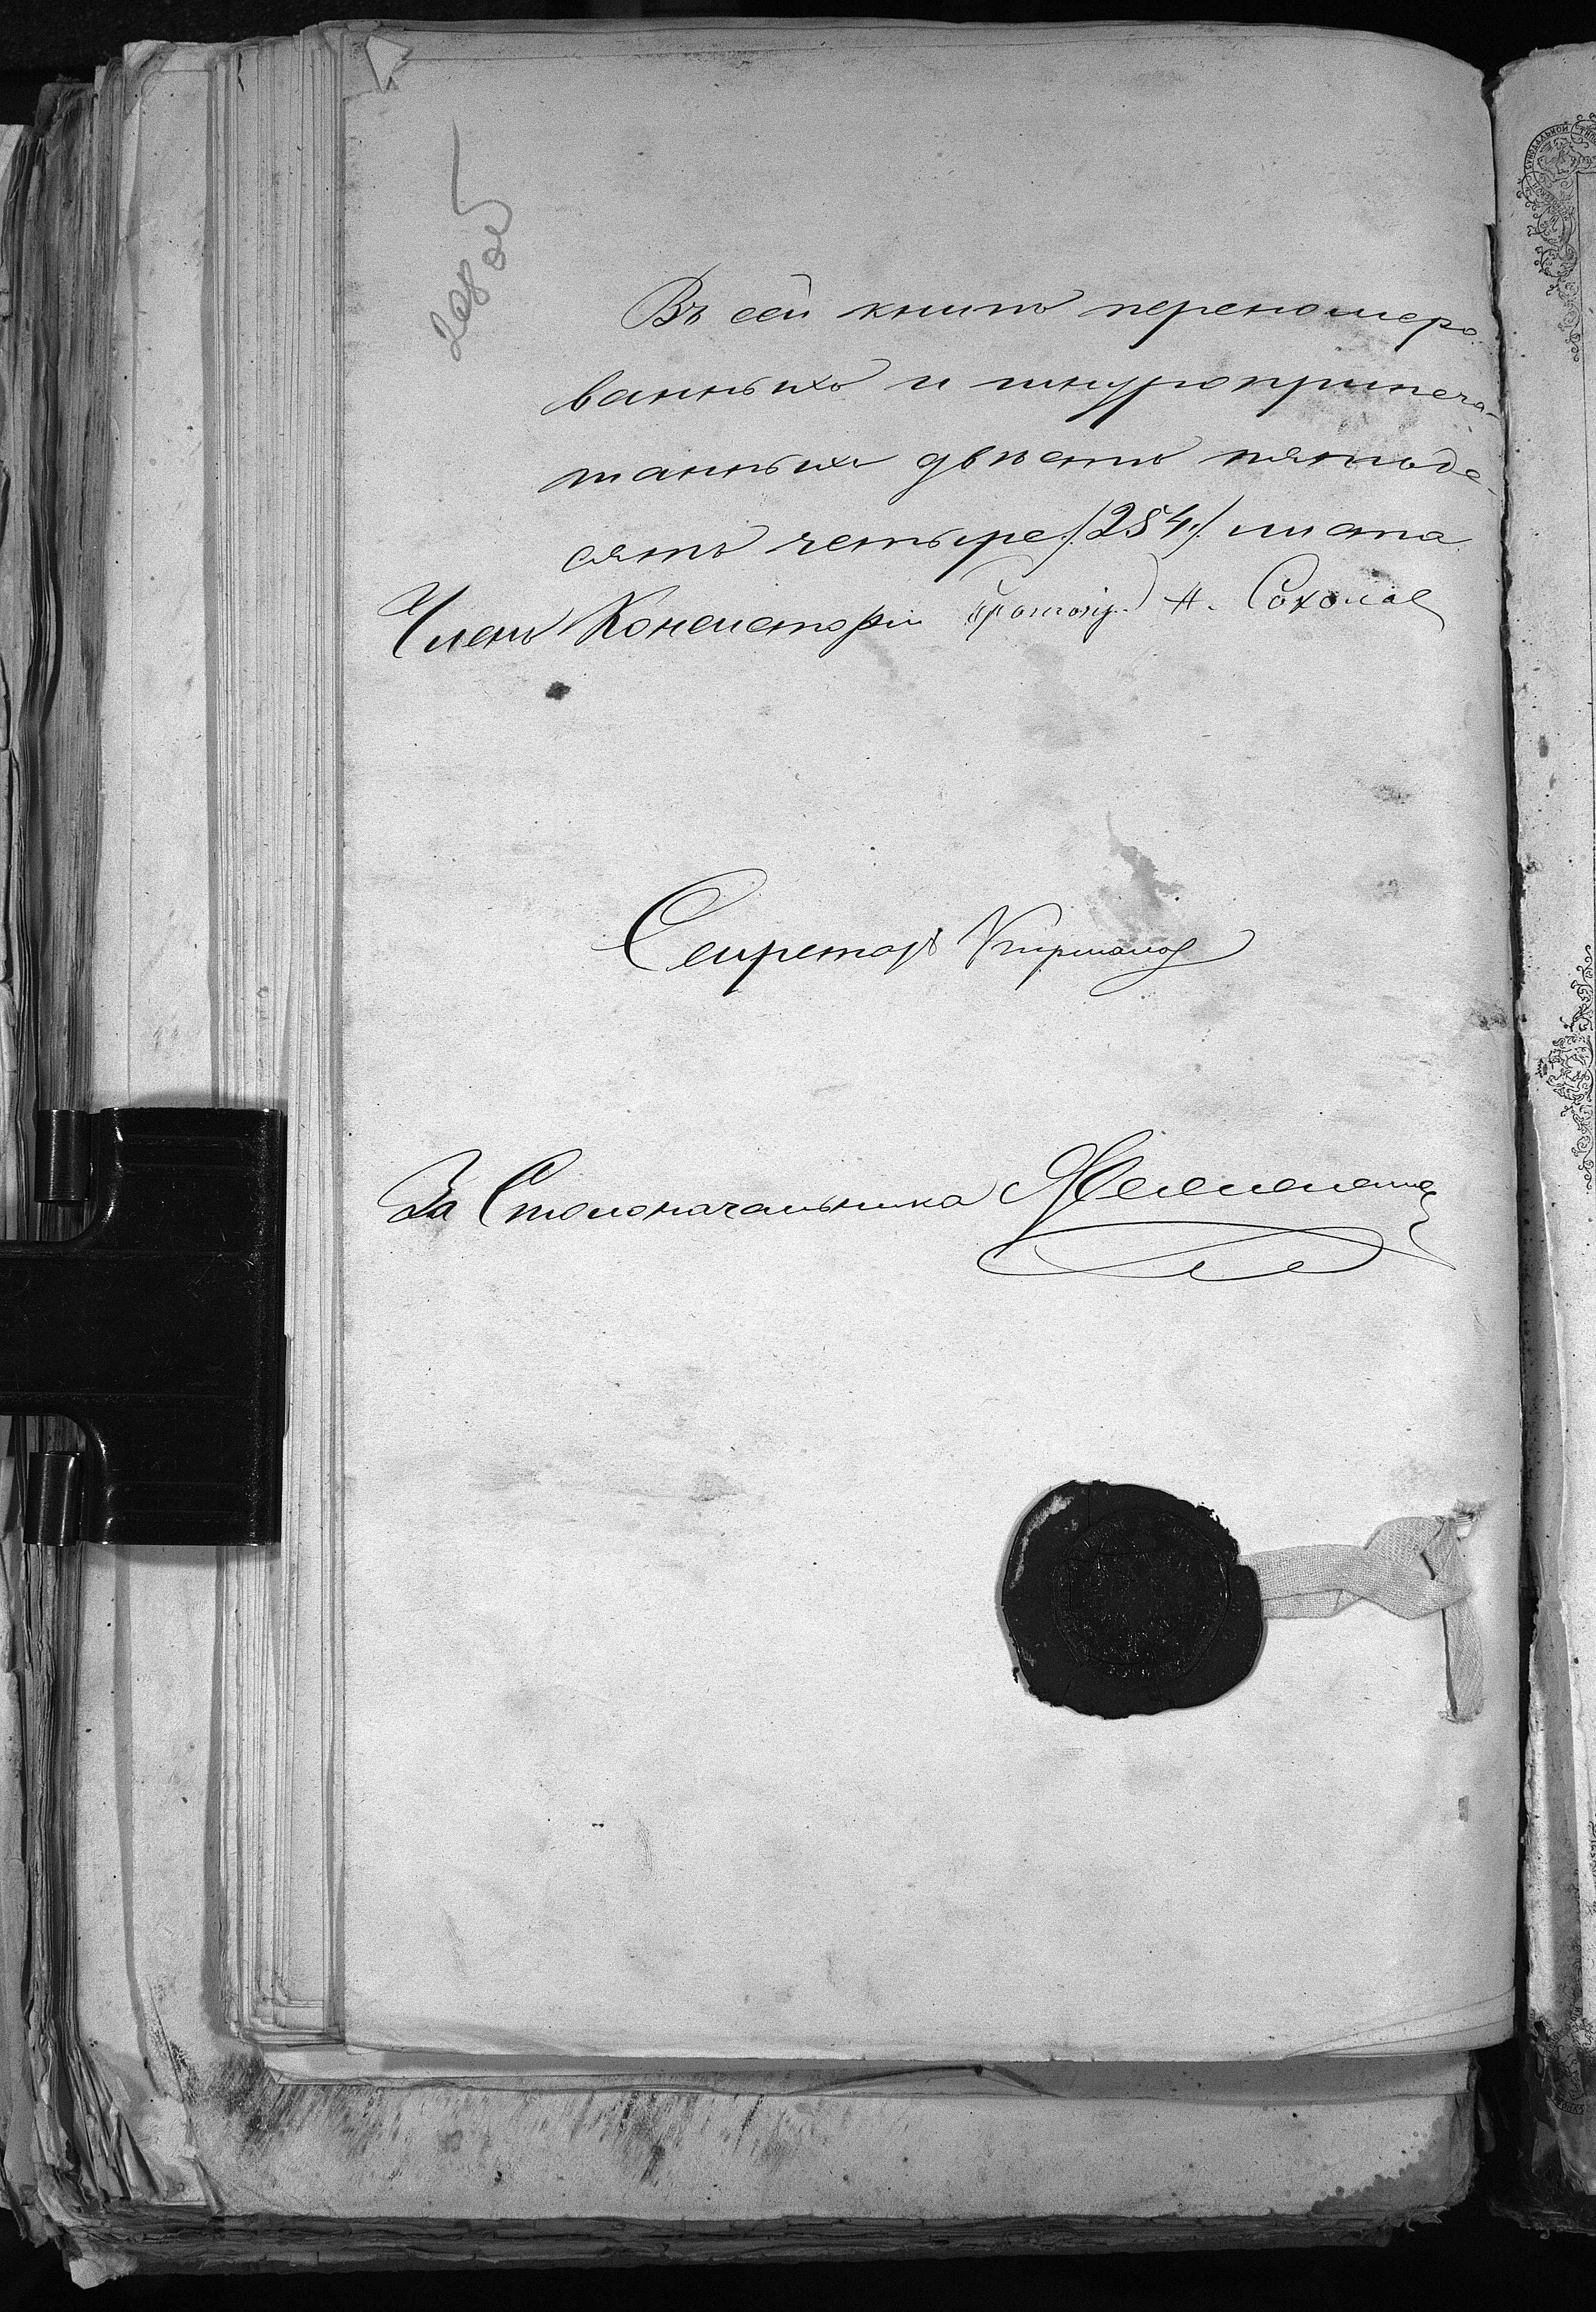 208 об
Въ сей книгѣ перенумеро-
ванныхъ и шнуроприпеча-
танныхъ двѣсти пятьде-
сятъ четыре /254/ листа
Членъ Консисторіи Н. Соколов
Секретарь
За Столоначальника